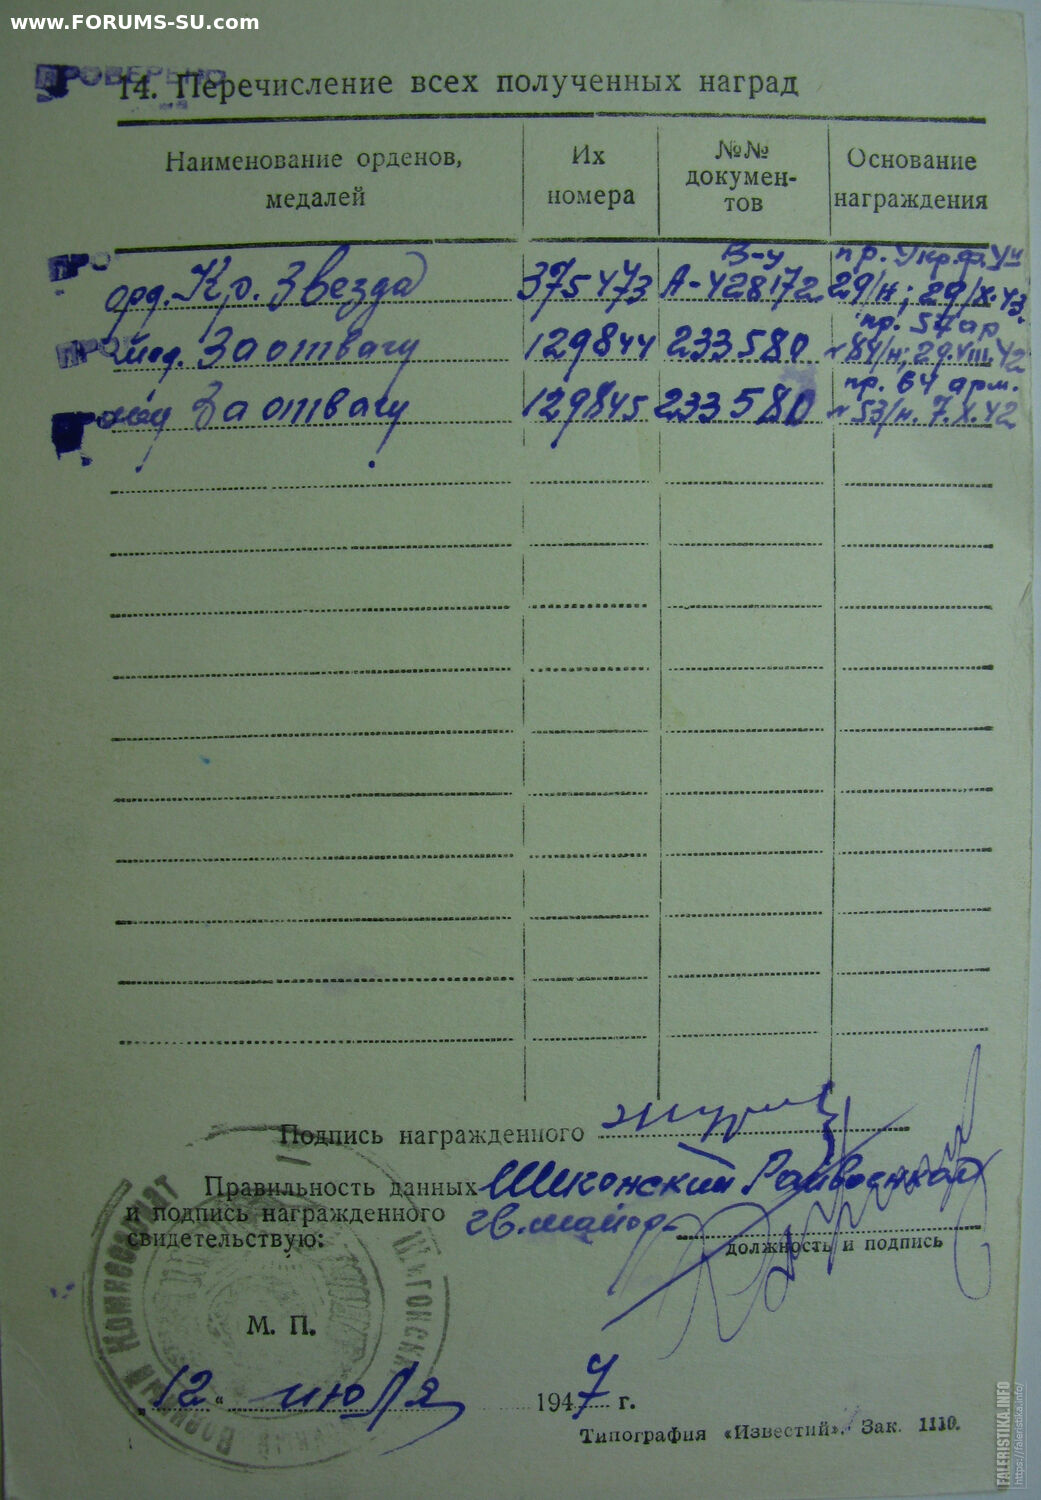 www.FORUMS-SU.com
ПРОВЕРЕНО
14. Перечисление всех полученных наград
Наименование орденов, медалей
Их номера
№№ документов
Основание награждения
орд. Кр. Звезда 375473 В-у А-428172 пр. Укр. ф. 29/н; 29/X.43.
мед. За отвагу 129844 233580 пр. 54 ар 84/н; 29.VIII 42
мед За отвагу 129845 233580 пр. 64 арм. 53/н. 7.X.42
Подпись награжденного
Правильность данных Шигонский Райвоенком
и подпись награжденного гв. майор
свидетельствую:
должность и подпись
М. П.
Военный Комиссариат
„12“ июля 1947 г.
Типография «Известий». Зак. 1110.
FALERISTIKA.INFO
https://faleristika.info/